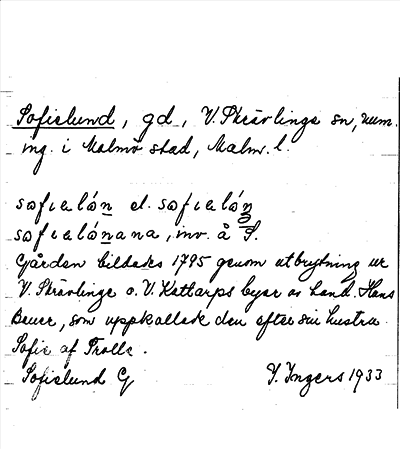 Sofielund, gd, V. Skrävlinge sn, num.
ing. i Malmö stad, Malm. l.
sofialón el. sofialón
sofialónana, inv. å S.
Gården bildades 1795 genom utbrytning ur
V. Skrävlinge o. V. Kattarps byar av hand. Hans
Beuer, som uppkallade den efter sin hustru
Sofie af Trolle.
Sofielund G I. Ingers 1933